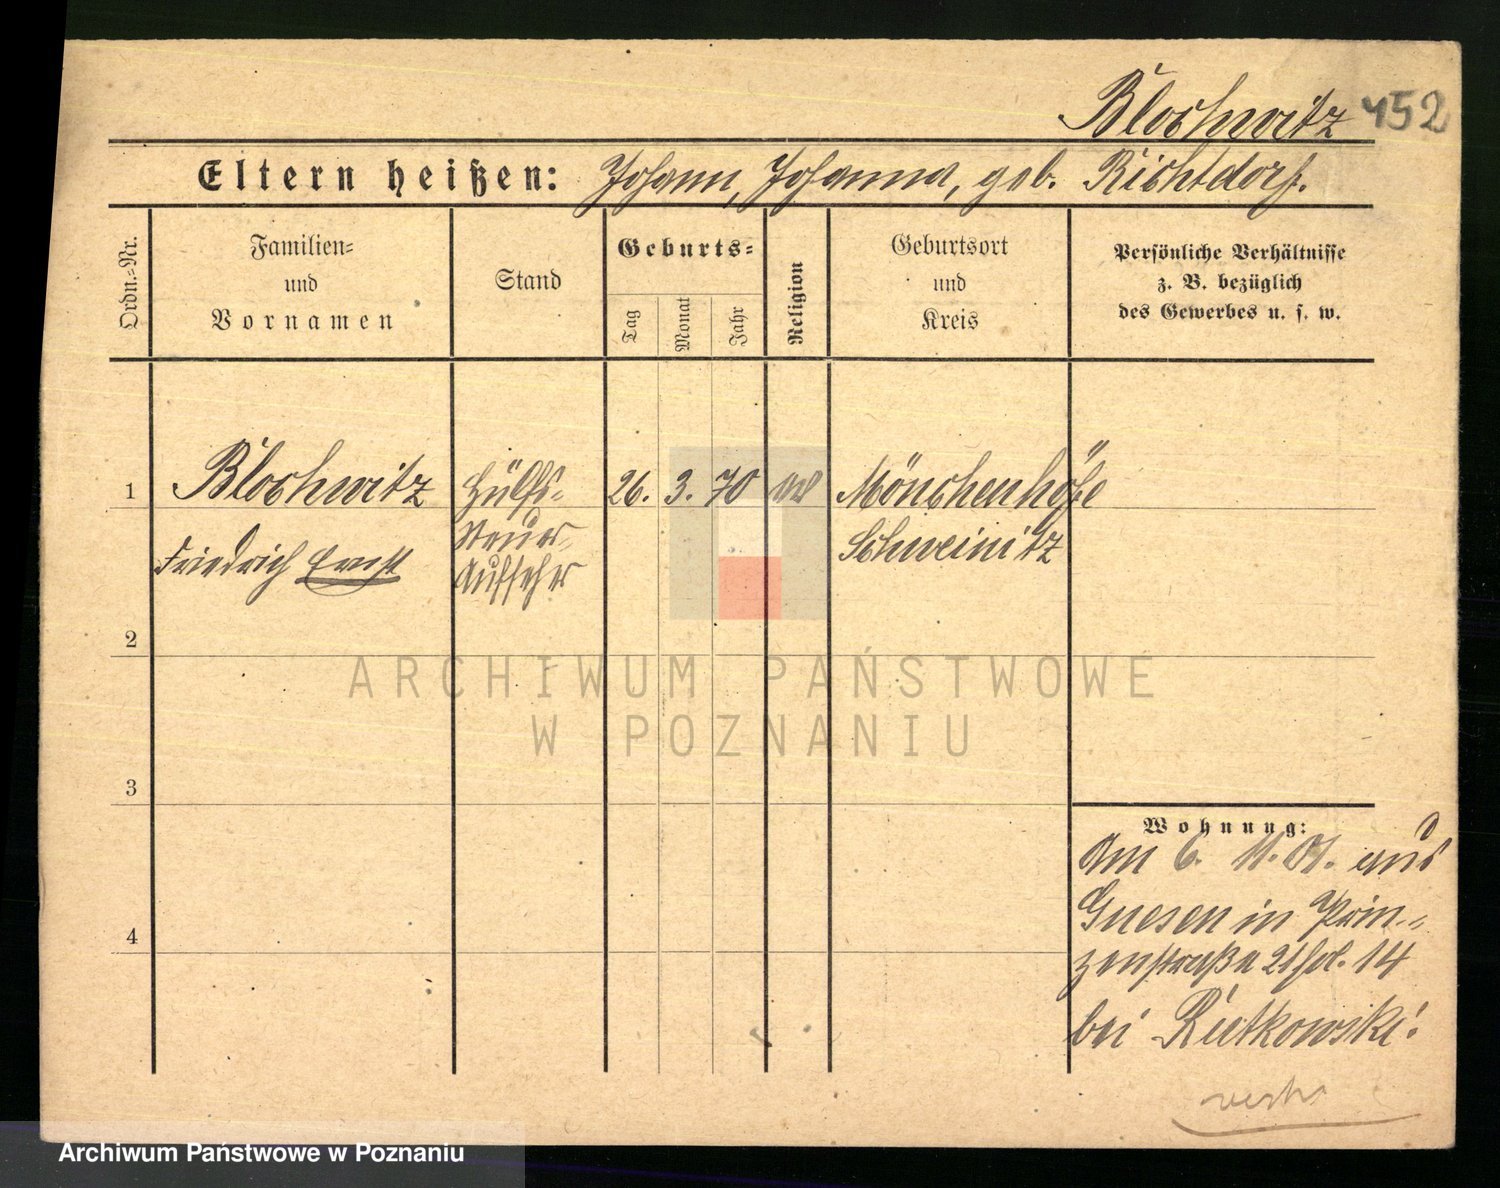 Blochwitz 452
Eltern heißen: Johann, Johanna, geb. Richtdorf.
Ordn.=Nr.
Familien=
und
Vornamen
Stand
Geburts=
Tag
Monat
Jahr
Religion
Geburtsort
und
Kreis
Persönliche Verhältnisse
z. B. bezüglich
des Gewerbes u. s. w.
1 Blochwitz Hülfs= 26. 3. 70 ev Mönchenhöfe
Friedrich Ernst Steuer= Schweinitz
Aufseher
2
3
4
ARCHIWUM PAŃSTWOWE
W POZNANIU
Wohnung:
Am 6. 11. 01. aus
Gnesen in Prin=
zenstraße 14
bei Rutkowski.
Archiwum Państwowe w Poznaniu